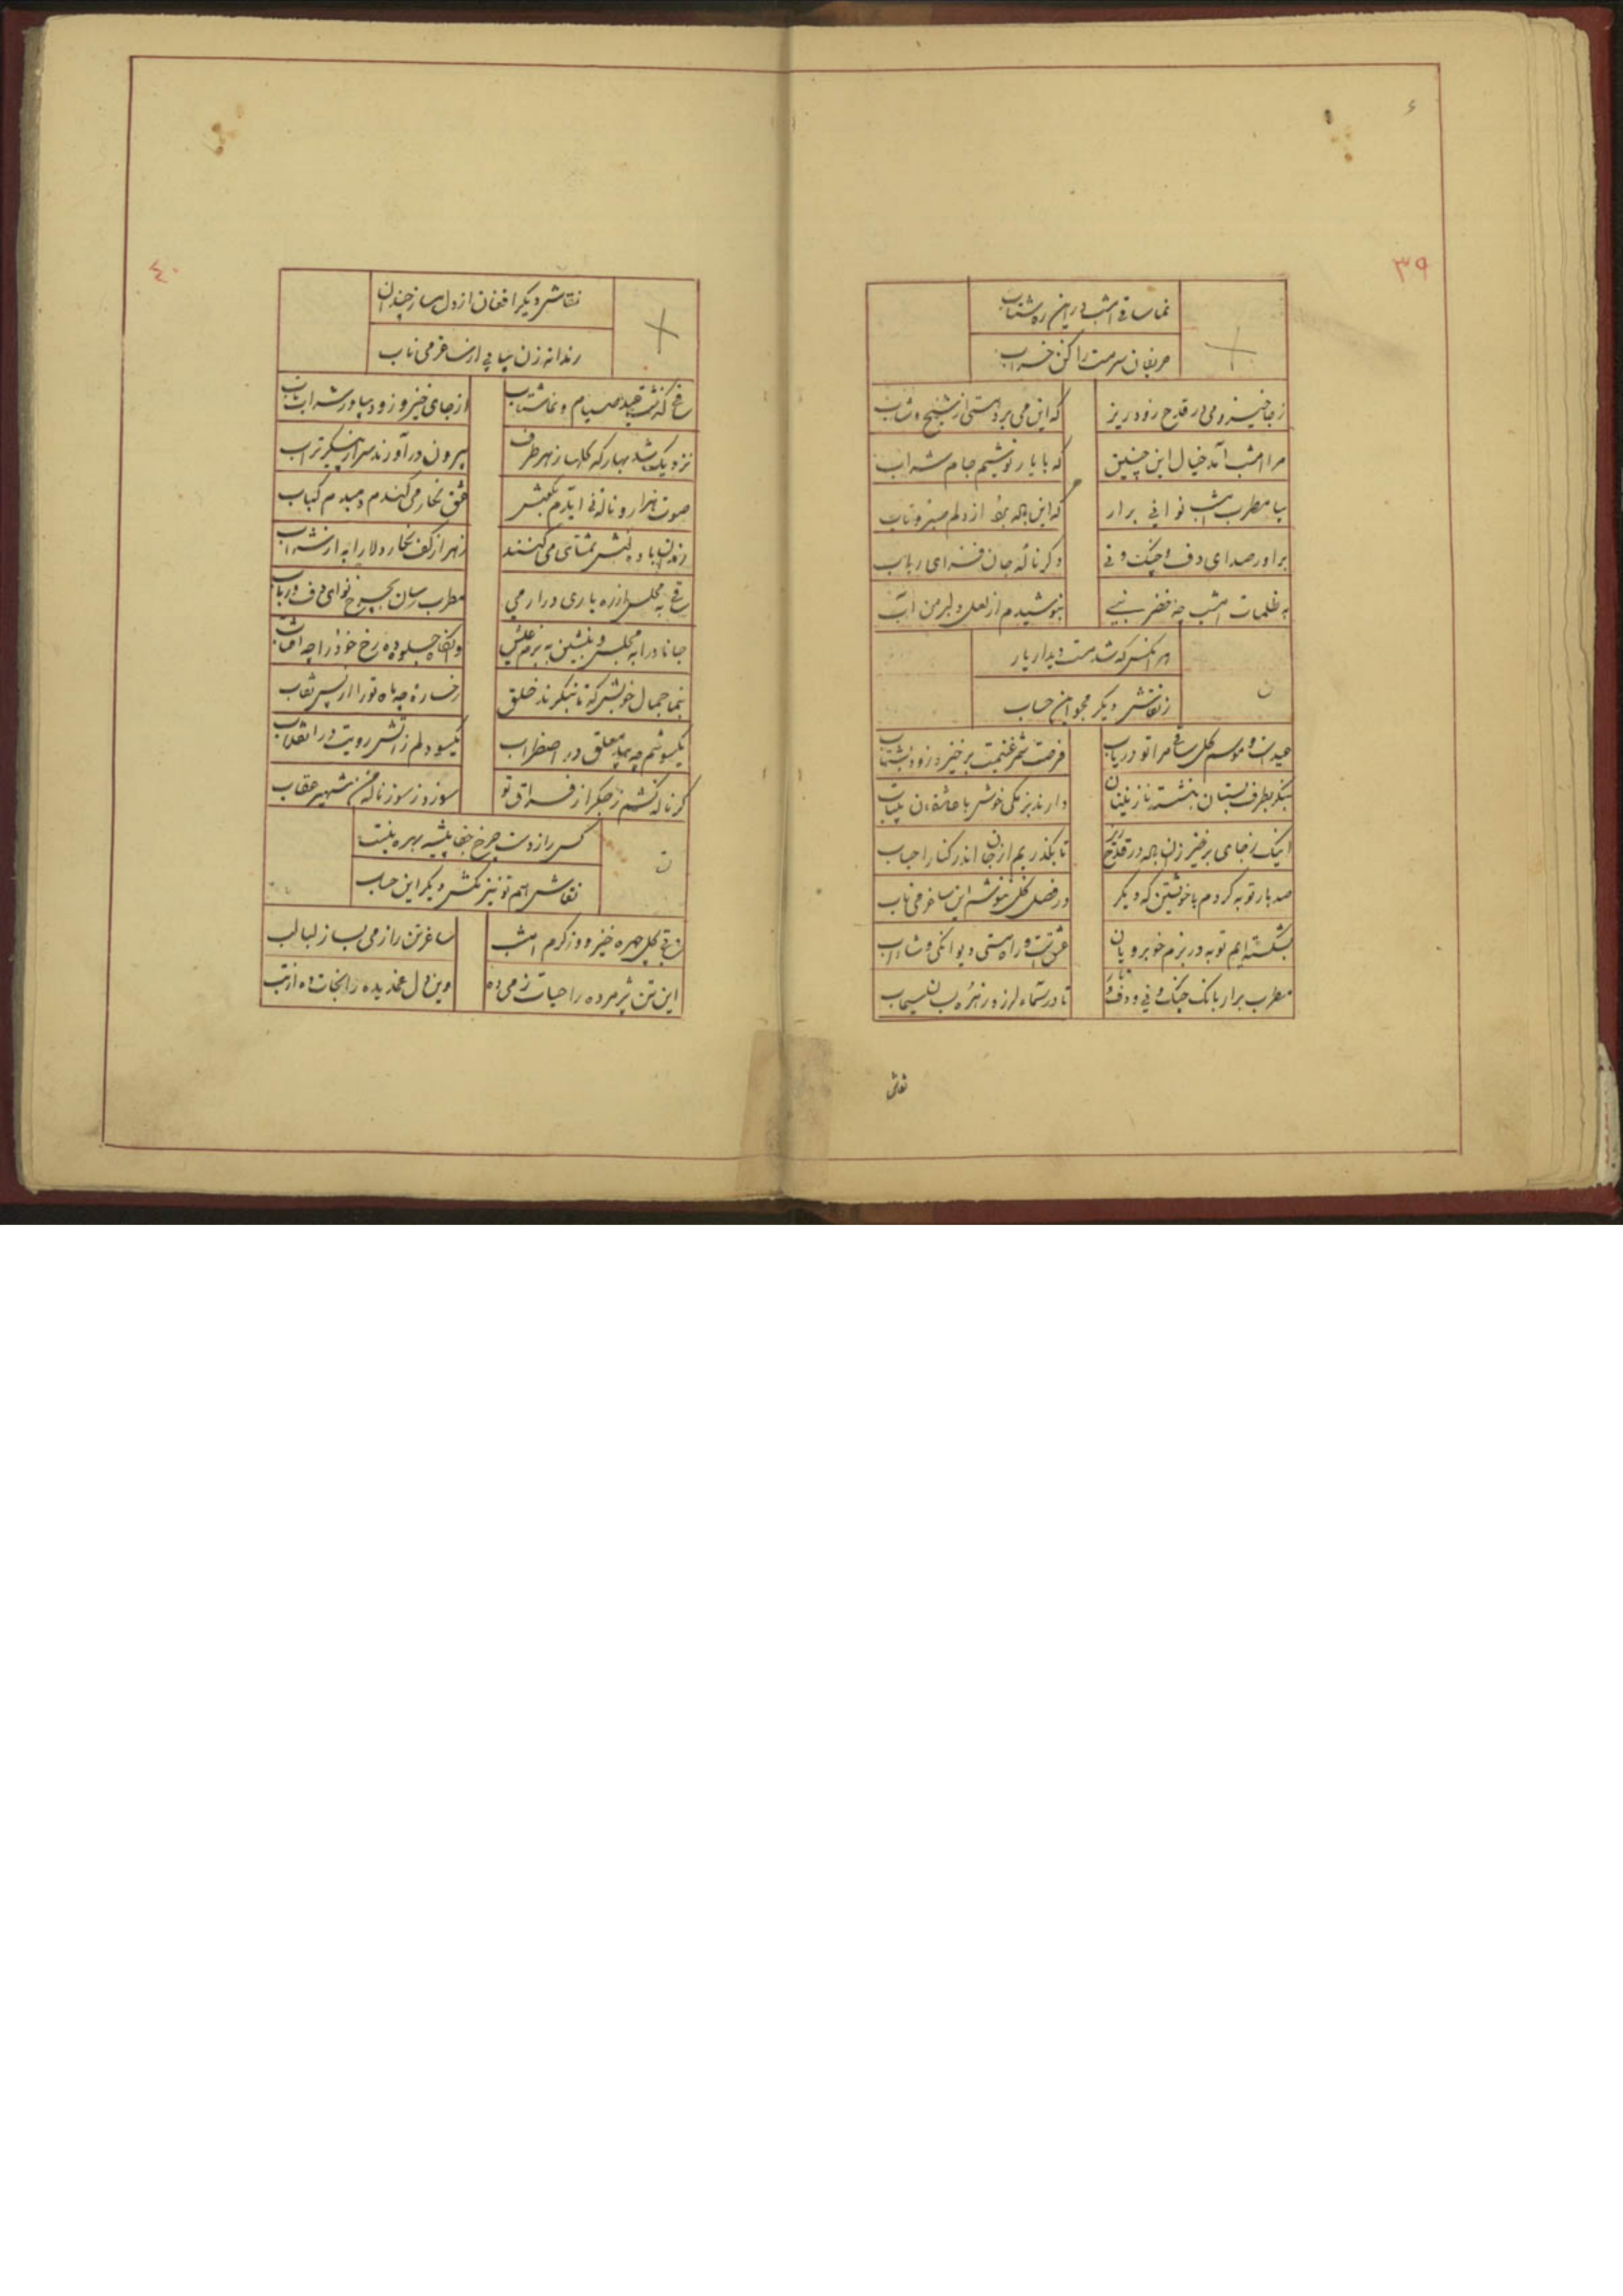 ۳۹
نما ساقی امشب در این ره شتاب
حریفان سرمست را کن خراب
ز جا خیز و می در قدح زود ریز
که این می برد هستی از شیخ و شاب
مرا امشب آمد خیال این چنین
که با یار نوشیم جام شراب
بیا مطرب امشب نوایی برار
که این برد از دلم صبر و تاب
براور صدای دف و چنگ و نی
دگر ناله جان فزای رباب
به ظلمات امشب چه خضر نبی
بنوشیدم از لعل دلبر من آب
هر آنکس که شد مست دیدار یار
ز نقاش دیگر مجو این حساب
عید است و موسم گل ساقی مرا تو دریاب
فرصت شمر غنیمت برخیز و زود بشتاب
بنگر بطرف بستان بنشسته نازنینان
دارند بزمکی خوش با عاشقان
اینک ز جای برخیز در قدح ریز
تا بگذریم از جان اندر کنار احباب
صد بار توبه کردم با خویشتن که دیگر
در فصل گل ننوشم این ساغر می ناب
بشکسته ایم توبه در بزم خوبرویان
عشق است و راه مستی دیوانگی و شاداب
مطرب برار بانک چنگ و نی و دف
تا در سماء لرزد زهره بسان سیماب
نقاش
٤٠
نقاش دیگر افغان از دل مساز چندان
رندانه زن پیاپی از ساغر می ناب
ساقی گذشت عید صیام و نما شتاب
از جای خیز و زود بیاور شراب ناب
نزدیک شد بهار که گلها ز هر طرف
بیرون در آورند سر از پیکر تراب
صوت هزار و ناله نی آیدم بگوش
عشق نگار می کندم دمبدم کباب
رندان باده کش تمنای می کنند
زهر از کف نگار دلارا به از شراب
ساقی به مجلس از ره یاری در ار می
مطرب رسان بچرخ نوای دف و رباب
جانا درا به مجلس و بنشین به بزم عیش
وانگاه جلوه ده رخ خود را چه آفتاب
بنما جمال خویش که تا بنگرند خلق
رخساره چه ماه تو را از پس نقاب
یکسو تنم چه بید معلق در اضطراب
یکسو دلم ز آتش رویت در انقلاب
گر ناله کشم ز جگر از فراق تو
سوزد ز سوز ناله من شهپر عقاب
کس را ز دست چرخ جفا پیشه بهره نیست
نقاش هم تو نیز مکش دیگر این حساب
ساقی گلچهره خیز و از کرم امشب
ساغر تن را ز می بساز لبالب
این تن پژمرده را حیات ز می ده
وین دل غمدیده را نجات ده از تب